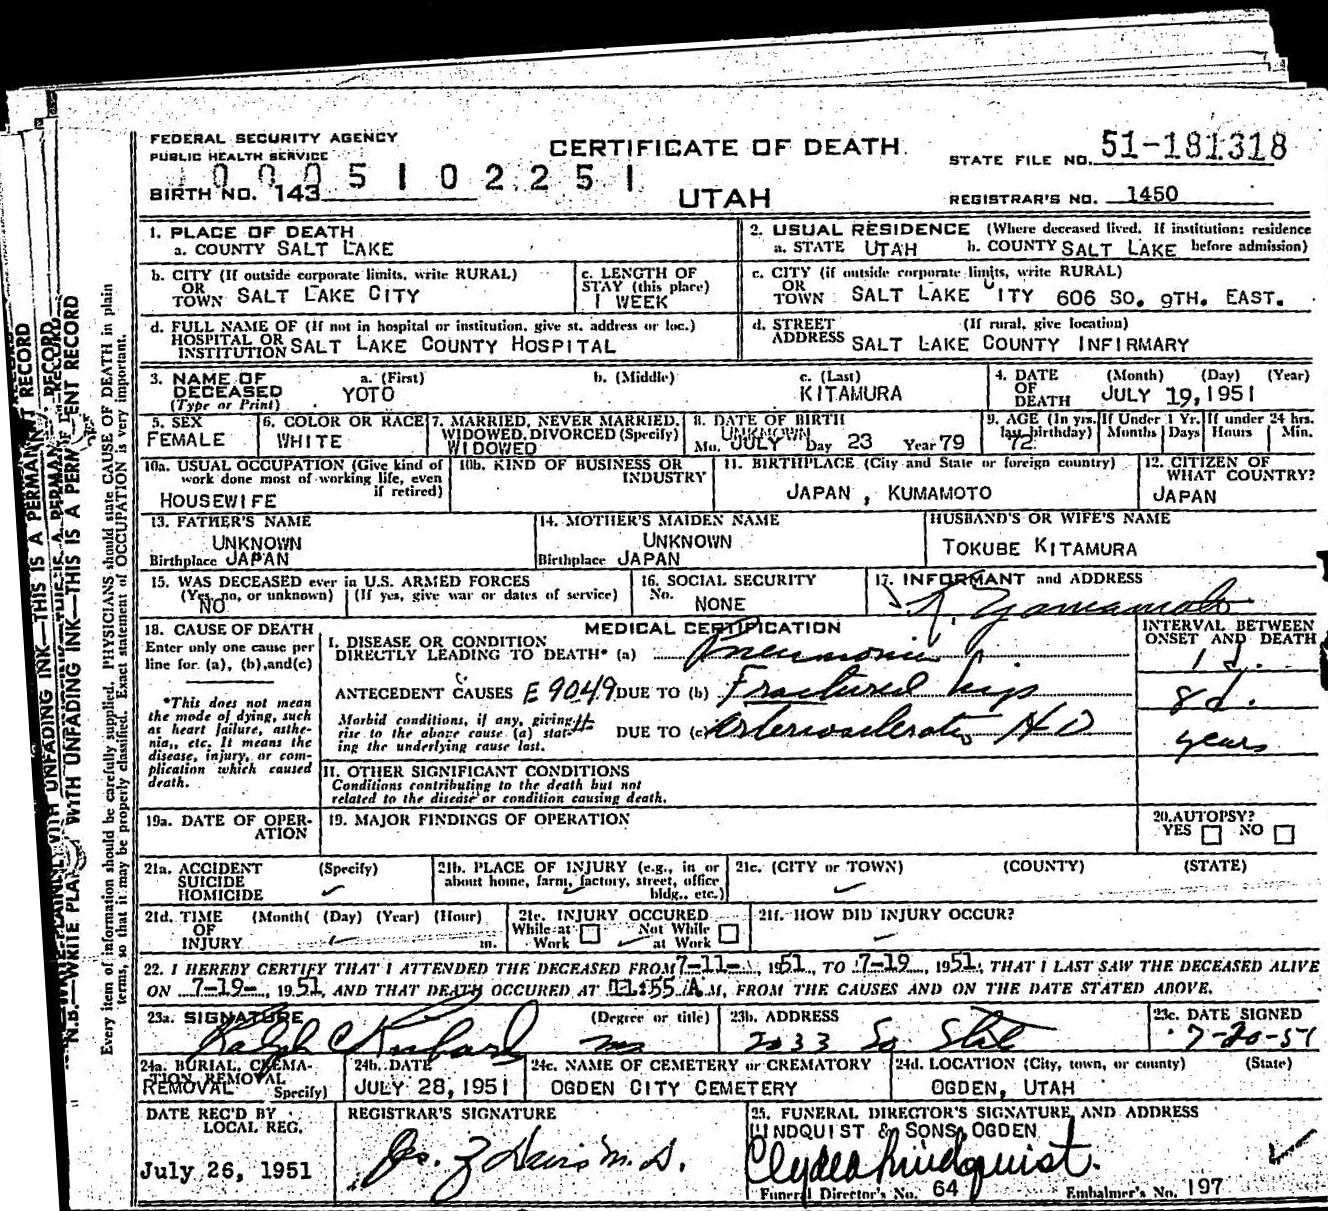 FEDERAL SECURITY AGENCY
PUBLIC HEALTH SERVICE
CERTIFICATE OF DEATH
STATE FILE NO. 51-181318
0005102251
BIRTH NO. 143
UTAH
REGISTRAR'S NO. 1450
1. PLACE OF DEATH
a. COUNTY SALT LAKE
2. USUAL RESIDENCE (Where deceased lived. If institution: residence before admission)
a. STATE UTAH b. COUNTY SALT LAKE
b. CITY (If outside corporate limits, write RURAL)
OR TOWN SALT LAKE CITY
c. LENGTH OF STAY (this place)
1 WEEK
c. CITY (if outside corporate limits, write RURAL)
OR TOWN SALT LAKE CITY 606 SO. 9TH. EAST.
d. FULL NAME OF (If not in hospital or institution, give st. address or loc.)
HOSPITAL OR INSTITUTION SALT LAKE COUNTY HOSPITAL
d. STREET ADDRESS (If rural, give location)
SALT LAKE COUNTY INFIRMARY
3. NAME OF DECEASED (Type or Print)
a. (First) b. (Middle) c. (Last)
YOTO KITAMURA
4. DATE OF DEATH (Month) (Day) (Year)
JULY 19, 1951
5. SEX
FEMALE
6. COLOR OR RACE
WHITE
7. MARRIED, NEVER MARRIED, WIDOWED, DIVORCED (Specify)
WIDOWED
8. DATE OF BIRTH
UNKNOWN
Mo. JULY Day 23 Year 79
9. AGE (In yrs. last birthday) If Under 1 Yr. Months Days If under 24 hrs. Hours Min.
72
10a. USUAL OCCUPATION (Give kind of work done most of working life, even if retired)
HOUSEWIFE
10b. KIND OF BUSINESS OR INDUSTRY
11. BIRTHPLACE (City and State or foreign country)
JAPAN, KUMAMOTO
12. CITIZEN OF WHAT COUNTRY?
JAPAN
13. FATHER'S NAME
UNKNOWN
Birthplace JAPAN
14. MOTHER'S MAIDEN NAME
UNKNOWN
Birthplace JAPAN
HUSBAND'S OR WIFE'S NAME
TOKUBE KITAMURA
15. WAS DECEASED ever in U.S. ARMED FORCES
(Yes, no, or unknown) (If yes, give war or dates of service)
NO
16. SOCIAL SECURITY No.
NONE
17. INFORMANT and ADDRESS
Yamamoto
18. CAUSE OF DEATH
Enter only one cause per line for (a), (b), and (c)
*This does not mean the mode of dying, such as heart failure, asthenia, etc. It means the disease, injury, or complication which caused death.
MEDICAL CERTIFICATION
INTERVAL BETWEEN ONSET AND DEATH
I. DISEASE OR CONDITION DIRECTLY LEADING TO DEATH* (a) Pneumonia 1 d.
ANTECEDENT CAUSES E9049 DUE TO (b) Fractured hip 8 d.
Morbid conditions, if any, giving rise to the above cause (a) stating the underlying cause last.
DUE TO (c) Arteriosclerotic H D years
II. OTHER SIGNIFICANT CONDITIONS
Conditions contributing to the death but not related to the disease or condition causing death.
19a. DATE OF OPERATION
19. MAJOR FINDINGS OF OPERATION
20. AUTOPSY?
YES NO
21a. ACCIDENT SUICIDE HOMICIDE (Specify)
21b. PLACE OF INJURY (e.g., in or about home, farm, factory, street, office bldg., etc.)
21c. (CITY or TOWN) (COUNTY) (STATE)
21d. TIME OF INJURY (Month) (Day) (Year) (Hour) m.
21e. INJURY OCCURED
While at Work Not While at Work
21f. HOW DID INJURY OCCUR?
22. I HEREBY CERTIFY THAT I ATTENDED THE DECEASED FROM 7-11-, 1951, TO 7-19, 1951, THAT I LAST SAW THE DECEASED ALIVE
ON 7-19-, 1951, AND THAT DEATH OCCURED AT 11:55 A.M, FROM THE CAUSES AND ON THE DATE STATED ABOVE.
23a. SIGNATURE (Degree or title)
Ralph C
23b. ADDRESS
2033 So State
23c. DATE SIGNED
7-20-51
24a. BURIAL, CREMATION, REMOVAL (Specify)
REMOVAL
24b. DATE
JULY 28, 1951
24c. NAME OF CEMETERY or CREMATORY
OGDEN CITY CEMETERY
24d. LOCATION (City, town, or county) (State)
OGDEN, UTAH
DATE REC'D BY LOCAL REG.
July 26, 1951
REGISTRAR'S SIGNATURE
M.D.
25. FUNERAL DIRECTOR'S SIGNATURE AND ADDRESS
LINDQUIST & SONS, OGDEN
Lindquist.
Funeral Director's No. 64 Embalmer's No. 197
N.B.—WRITE PLAINLY WITH UNFADING INK—THIS IS A PERMANENT RECORD
Every item of information should be carefully supplied. PHYSICIANS should state CAUSE OF DEATH in plain
terms, so that it may be properly classified. Exact statement of OCCUPATION is very important.